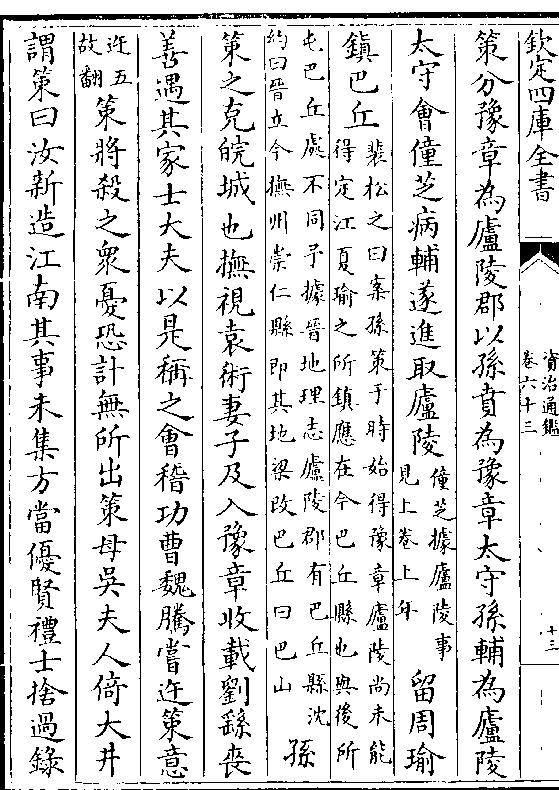 欽定四庫全書
資治通鑑
卷六十三
十三
策分豫章為廬陵郡以孫賁為豫章太守孫輔為廬陵
太守會僮芝病輔遂進取廬陵
僮芝據廬陵事
見上卷上年
留周瑜
鎮巴丘
裴松之曰案孫策于時始得豫章廬陵尚未能
得定江夏瑜之所鎮應在今巴丘縣也與後所
屯巴丘處不同予據晉地理志廬陵郡有巴丘縣沈
約曰晉立今撫州崇仁縣即其地梁改巴丘曰巴山
孫
策之克皖城也撫視袁術妻子及入豫章收載劉繇喪
善遇其家士大夫以是稱之會稽功曹魏騰嘗迕策意
迕五
故翻
策將殺之衆憂恐計無所出策母吳夫人倚大井
謂策曰汝新造江南其事未集方當優賢禮士捨過錄